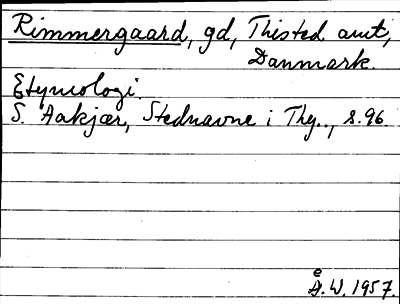 Rimmergaard, gd, Thisted amt,
Danmark
Etymologi.
S. Aakjær, Stednavne i Thy.., s.96.
e
A.W. 1957.